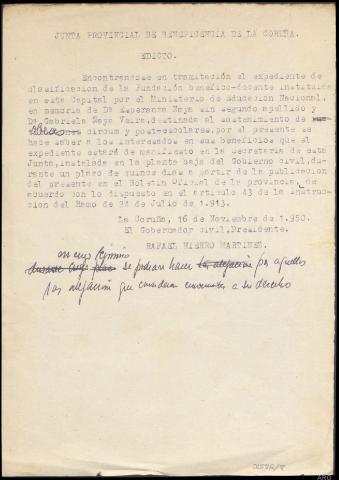 JUNTA PROVINCIAL DE BENEFICENCIA DE LA CORUÑA.
EDICTO.
Encontrandose en tramitación el expediente de
clasificación de la Fundación benéfico-docente instituida
en esta Capital por el Ministerio de Educación Nacional,
en memoria de Dª Esperanza Naya sin segundo apellido y
Dª Gabriela Naya Veira, destinada al sostenimiento de
circum y post-escolares, por el presente se
hace saber a los interesados en sus beneficios que el
expediente estará de manifiesto en la Secretaria de esta
Junta, instalada en la planta baja del Gobierno civil, du-
rante un plazo de quince dias a partir de la publicación
del presente en el Boletin Oficial de la provincia, de
acuerdo con lo dispuesto en el artículo 43 de la Instruc-
ción del Ramo de 24 de Julio de 1.913.
La Coruña, 16 de Noviembre de 1.950.
El Gobernador civil, Presidente.
RAFAEL HIERRO MARTINEZ.
en cuyo término
durante cuyo plazo se podrán hacer la alegación por aquellos
las alegación que consideren convenientes a su derecho
ARG